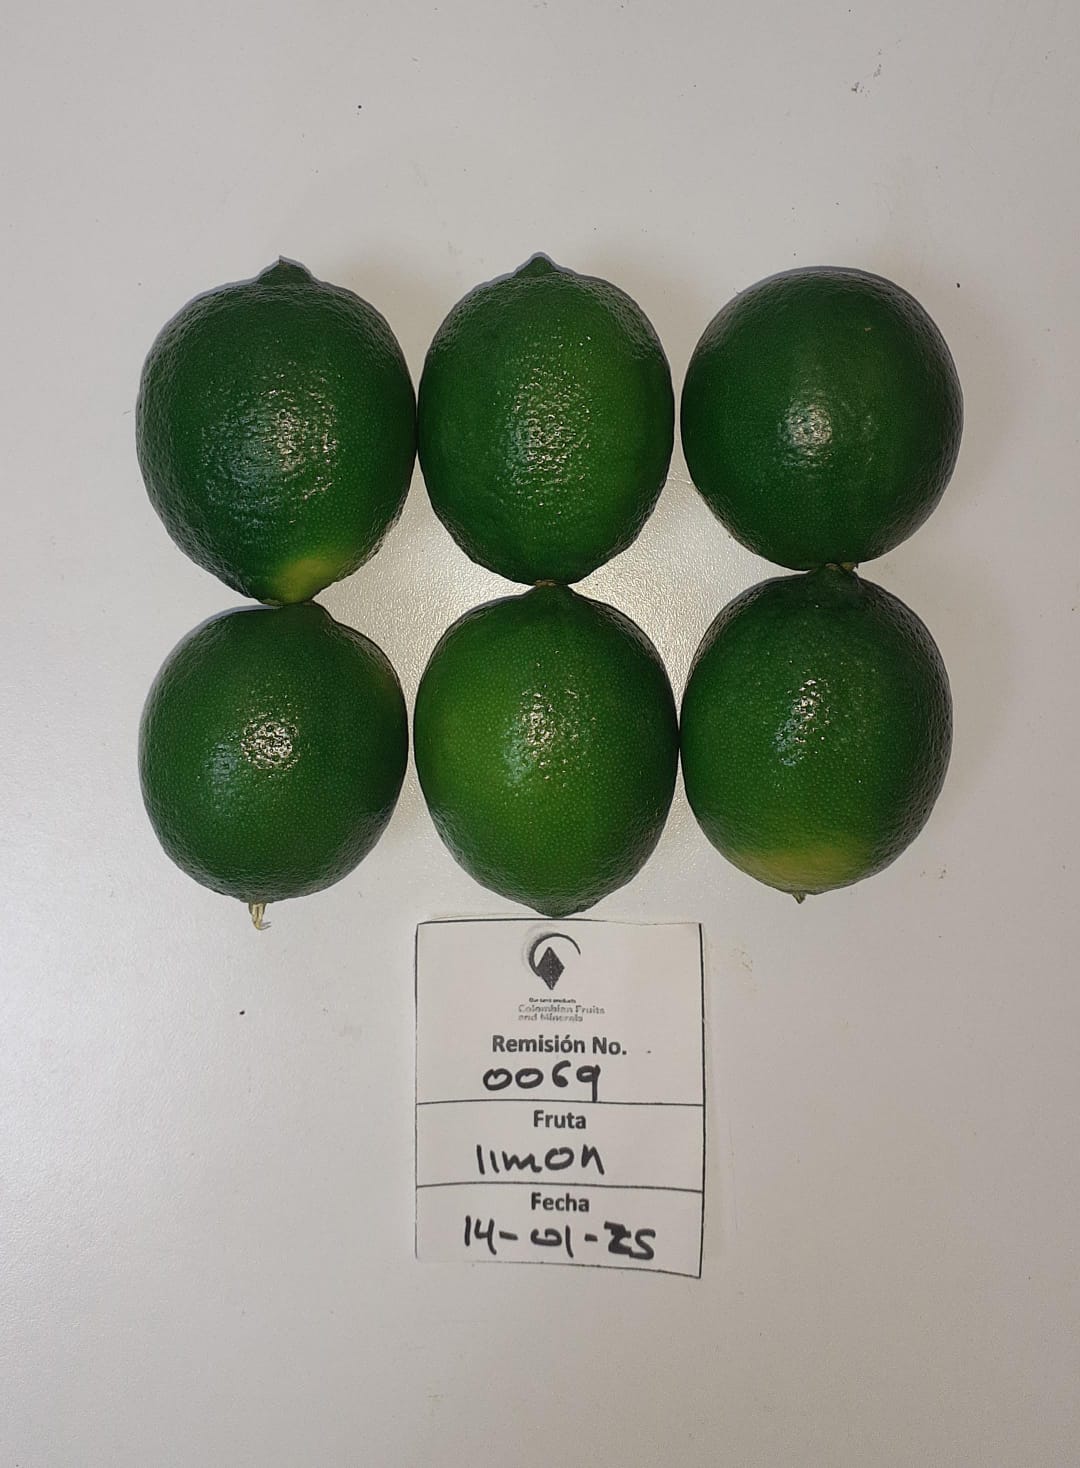 Our land products
Colombian Fruits
and Minerals
Remisión No.
0069
Fruta
limon
Fecha
14-01-25